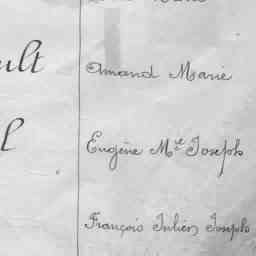 ult
Amand Marie
l
Eugène Mie Joseph
François Julien Joseph